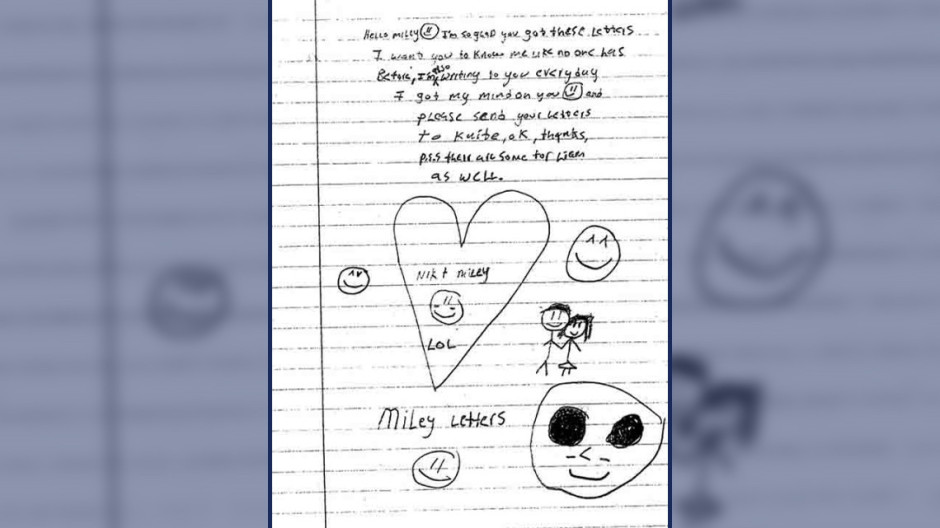 Hello miley I'm so glad you got these Letters
I want you to know me like no one has
Before, I'm also writing to you everyday
I got my mind on you and
please send your Letters
to, ok, thanks,
p.s.s their are some for Liam
as well.
Nik + miley
LOL
Miley Letters